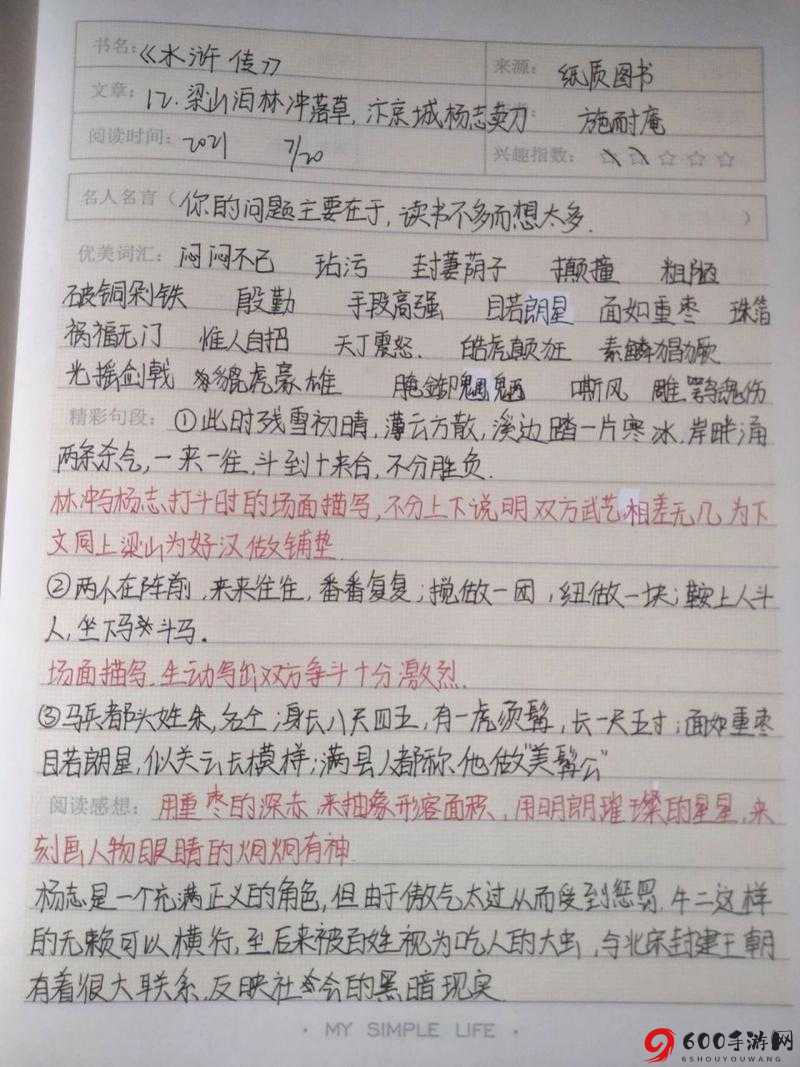 书名：《水浒传》 来源： 纸质图书
文章： 12.梁山泊林冲落草，汴京城杨志卖刀 施耐庵
阅读时间： 2021 7/20 兴趣指数：☆☆☆☆☆
名人名言（你的问题主要在于，读书不多而想太多.）
优美词汇： 闷闷不已 玷污 封妻荫子 颠撞 粗陋
破铜剁铁 殷勤 手段高强 目若朗星 面如重枣 珠箔
祸福无门 惟人自招 天丁震怒. 皓虎颠狂 素麟猖獗
光摇剑戟 貔虎豪雄 魍魉 嘶风 雕鹗魂伤
精彩句段： ①此时残雪初晴，薄云方散，溪边踏一片寒冰，岸畔涌
两条杀气，一来一往，斗到十来合，不分胜负.
林冲与杨志打斗时的场面描写，不分上下说明双方武艺相差无几为下
文同上梁山为好汉做铺垫.
②两人在阵前，来来往往，番番复复；搅做一团，纽做一块；鞍上人斗
人，坐下马斗马.
场面描写.生动写出双方争斗十分激烈.
③马兵都头姓朱，名仝；身长八尺四五，有一虎须髯，长一尺五寸；面如重枣
目若朗星，似关云长模样；满县人都称他做"美髯公"
阅读感想： 用重枣的深赤，来抽象形容面积，用明朗璀璨的星星，来
刻画人物眼睛的炯炯有神.
杨志是一个充满正义的角色，但由于傲气太过从而受到惩罚.牛二这样
的无赖可以横行，至后来被百姓视为吃人的大虫，与北宋封建王朝
有着很大联系.反映社会的黑暗现实.
· MY SIMPLE LIFE ·
600手游网
6SHOUYOUWANG